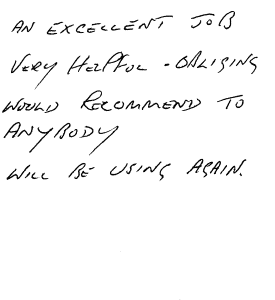 AN EXCELLENT JOB
VERY HELPFUL - OBLIGING
WOULD RECOMMEND TO
ANYBODY
WILL BE USING AGAIN.